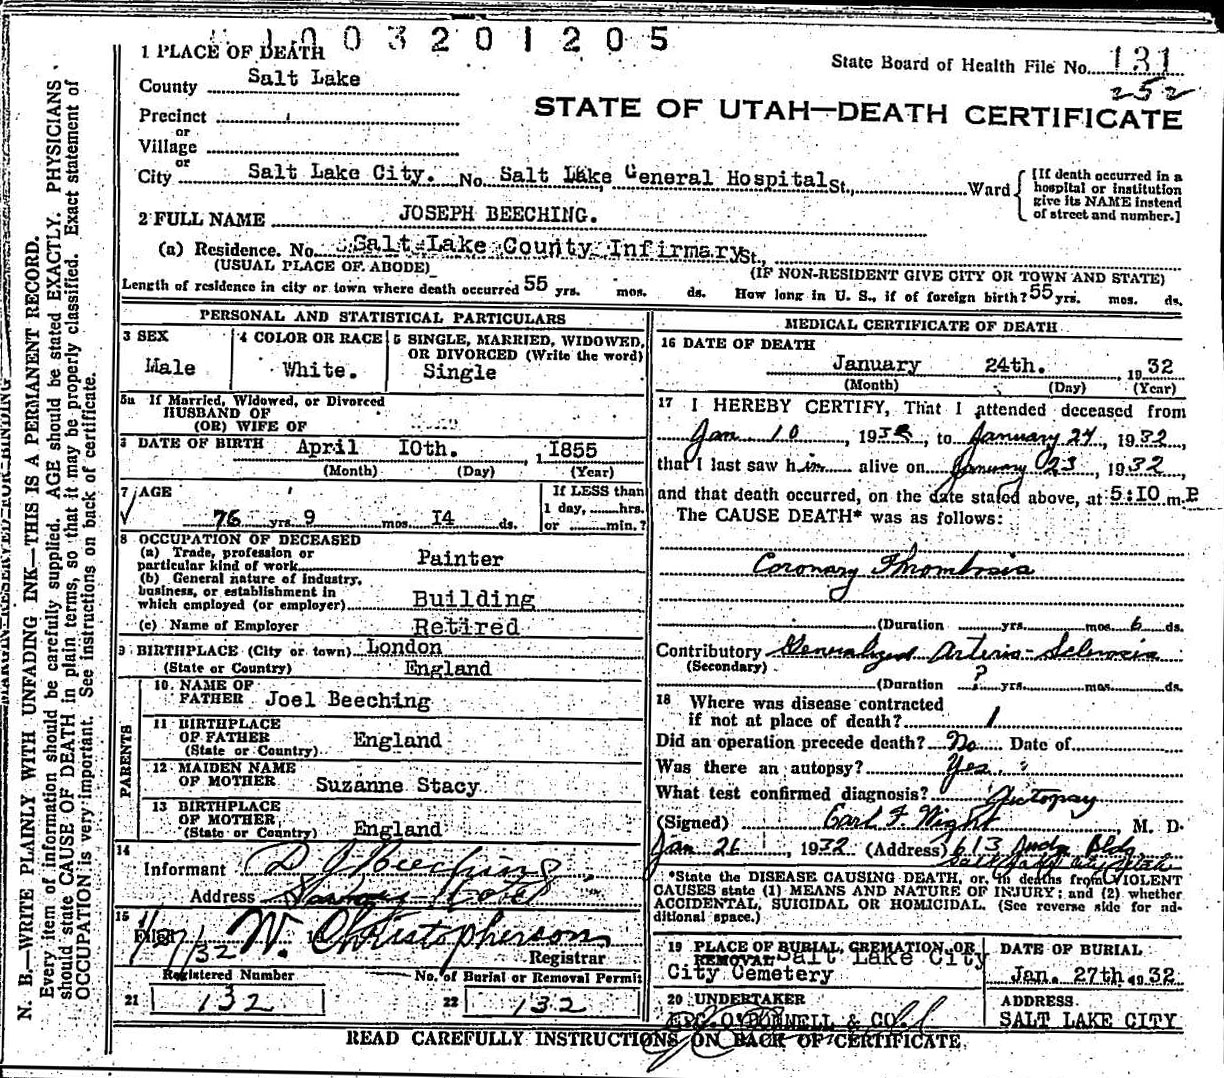 1003201205
1 PLACE OF DEATH
State Board of Health File No. 131
252
County Salt Lake
STATE OF UTAH—DEATH CERTIFICATE
Precinct
or
Village
or
City Salt Lake City. No. Salt Lake General Hospital St., Ward
[If death occurred in a hospital or institution give its NAME instead of street and number.]
2 FULL NAME JOSEPH BEECHING.
(a) Residence. No. Salt Lake County Infirmary St.,
(USUAL PLACE OF ABODE) (IF NON-RESIDENT GIVE CITY OR TOWN AND STATE)
Length of residence in city or town where death occurred 55 yrs. mos. ds. How long in U. S., if of foreign birth? 55 yrs. mos. ds.
PERSONAL AND STATISTICAL PARTICULARS
3 SEX
Male
4 COLOR OR RACE
White.
5 SINGLE, MARRIED, WIDOWED,
OR DIVORCED (Write the word)
Single
5a If Married, Widowed, or Divorced
HUSBAND OF
(OR) WIFE OF
DATE OF BIRTH April 10th. , 1855
(Month) (Day) (Year)
7 AGE
76 yrs. 9 mos. 14 ds.
If LESS than
1 day, hrs.
or min.?
8 OCCUPATION OF DECEASED
(a) Trade, profession or
particular kind of work Painter
(b) General nature of industry,
business, or establishment in
which employed (or employer) Building
(c) Name of Employer Retired
9 BIRTHPLACE (City or town) London
(State or Country) England
PARENTS
10 NAME OF
FATHER Joel Beeching
11 BIRTHPLACE
OF FATHER England
(State or Country)
12 MAIDEN NAME
OF MOTHER Suzanne Stacy
13 BIRTHPLACE
OF MOTHER
(State or Country) England
14
Informant D J Beeching
Address Hotel
15
Filed 1/27/32 W. Christopherson
Registrar
Registered Number
21 132
No. of Burial or Removal Permit
22 132
MEDICAL CERTIFICATE OF DEATH
16 DATE OF DEATH
January 24th. , 1932
(Month) (Day) (Year)
17 I HEREBY CERTIFY, That I attended deceased from
Jan 10, 1932, to January 24, 1932,
that I last saw him alive on January 23, 1932,
and that death occurred, on the date stated above, at 5:10 m. P
The CAUSE DEATH* was as follows:
Coronary Thrombosis
(Duration yrs. mos. 6 ds.
Contributory Generalized Arterio-Sclerosis
(Secondary)
(Duration ? yrs. mos. ds.
18 Where was disease contracted
if not at place of death?
Did an operation precede death? No Date of
Was there an autopsy? Yes.
What test confirmed diagnosis? Autopsy
(Signed) Earl F. Wight M. D.
Jan 26, 1932 (Address) 613 Bldg
Salt Lake City Utah
*State the DISEASE CAUSING DEATH, or, in deaths from VIOLENT
CAUSES state (1) MEANS AND NATURE OF INJURY; and (2) whether
ACCIDENTAL, SUICIDAL OR HOMICIDAL. (See reverse side for ad-
ditional space.)
19 PLACE OF BURIAL, CREMATION, OR
REMOVAL Salt Lake City
City Cemetery
DATE OF BURIAL
Jan. 27th. 1932
20 UNDERTAKER
O'DONNELL & CO.
ADDRESS
SALT LAKE CITY
READ CAREFULLY INSTRUCTIONS ON BACK OF CERTIFICATE.
MARGIN RESERVED FOR BINDING
N. B.—WRITE PLAINLY WITH UNFADING INK—THIS IS A PERMANENT RECORD.
Every item of information should be carefully supplied. AGE should be stated EXACTLY. PHYSICIANS
should state CAUSE OF DEATH in plain terms, so that it may be properly classified. Exact statement of
OCCUPATION is very important. See instructions on back of certificate.